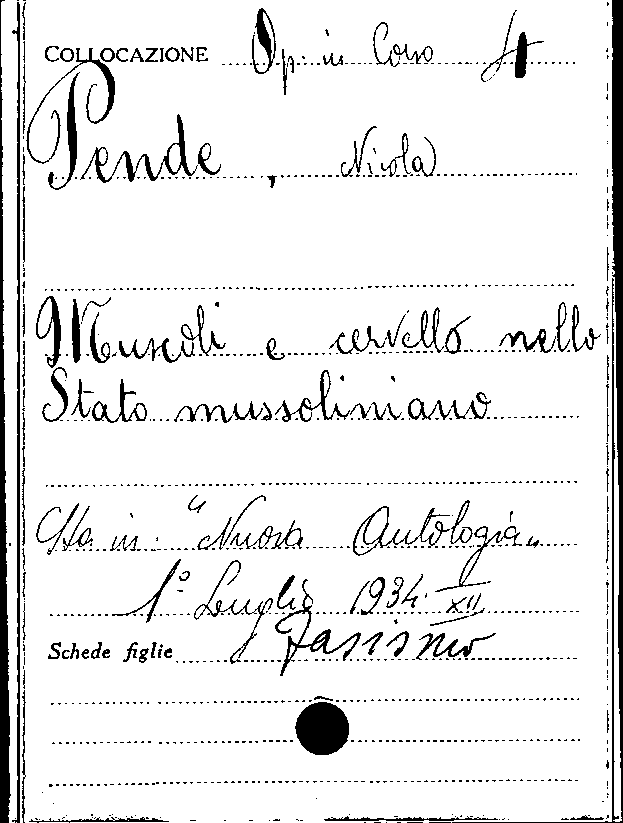 COLLOCAZIONE Op. in Corso 4
Pende, Nicola
Muscoli e cervello nello
Stato mussoliniano
Sta in: "Nuova Antologia"
1º Luglio 1934. XII
Schede figlie Fascismo